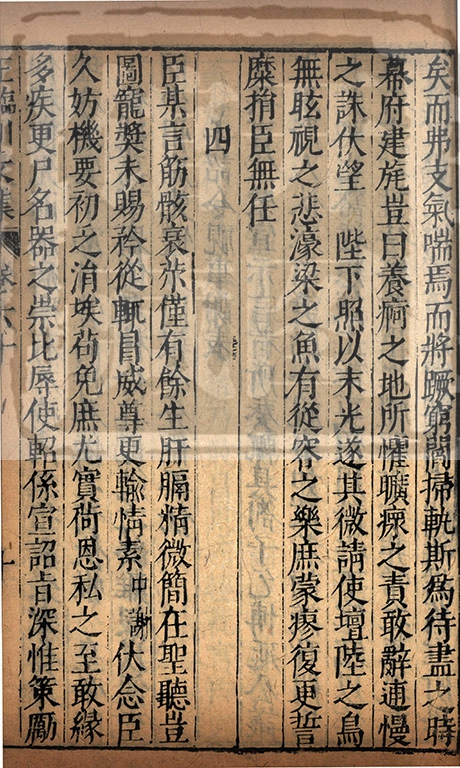 矣而弗支氣喘焉而將蹶窮閻掃軌斯爲待盡之時
幕府建旄豈曰養痾之地所懼曠瘝之責敢辭逋慢
之誅伏望 陛下照以末光遂其微請使壇陸之鳥
無眩視之悲濠梁之魚有從容之樂庶蒙瘳復更誓
糜捐臣無任
四
臣某言筋骸衰苶僅有餘生肝膈精微簡在聖聽豈
圖寵奬未賜矜從輒冒威尊更輸情素中謝伏念臣
久妨機要初乏涓埃茍免庶尤實荷恩私之至敢緣
多疾更尸名器之崇比辱使軺係宣詔㫖深惟策勵
王臨川文集 卷六十 九